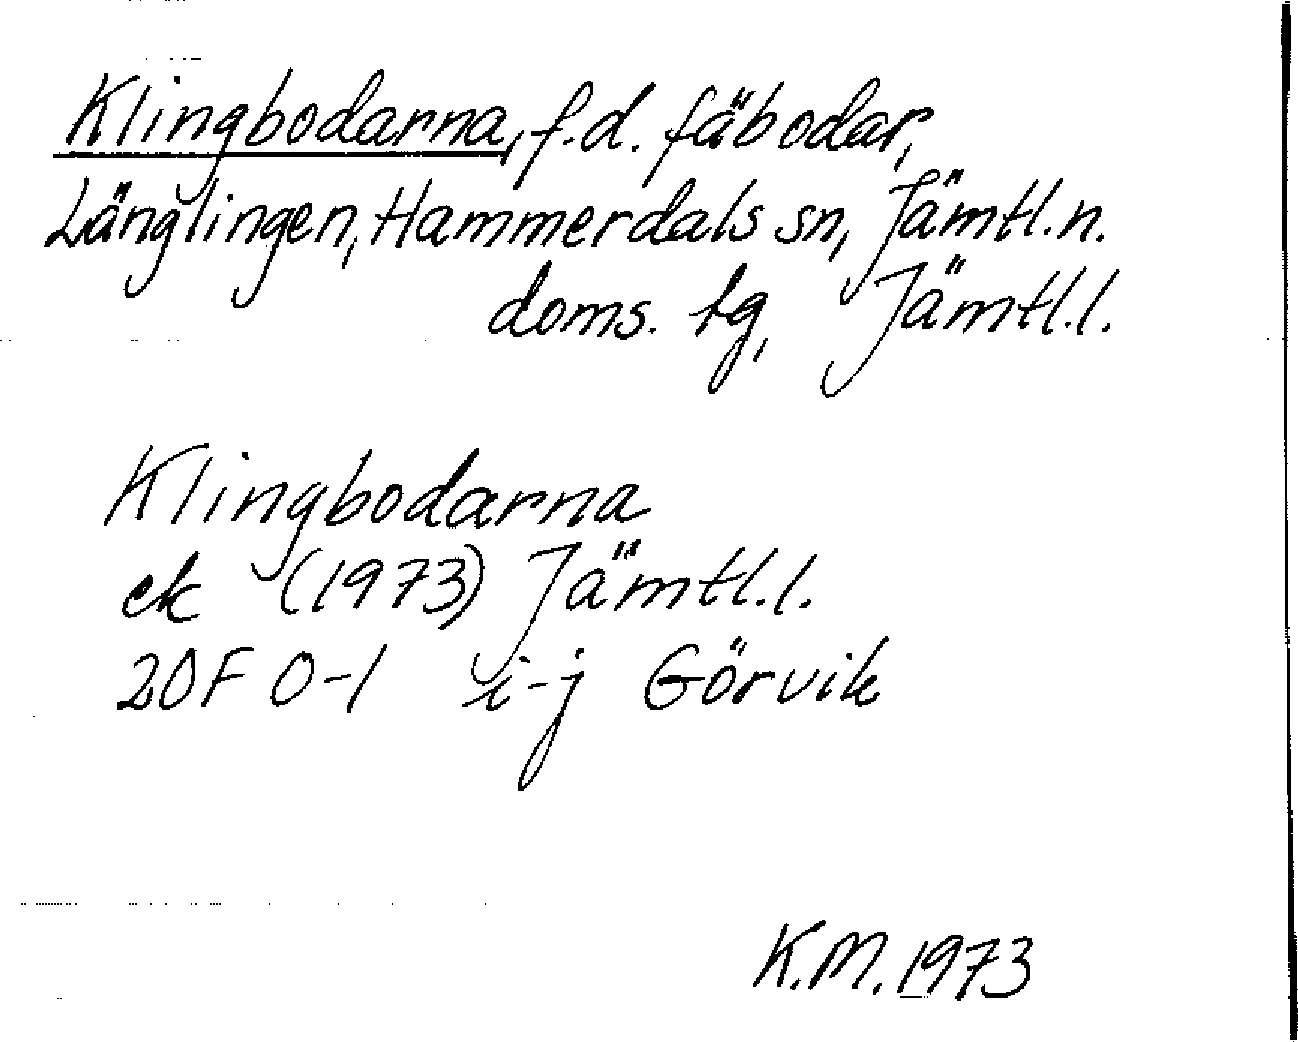 Klingbodarna, f.d. fäbodar,
Länglingen, Hammerdals sn, Jämtl.n.
doms. tg, Jämtl.l.
Klingbodarna
ek (1973) Jämtl.l.
20F 0-1 i-j Görvik
K.M. 1973